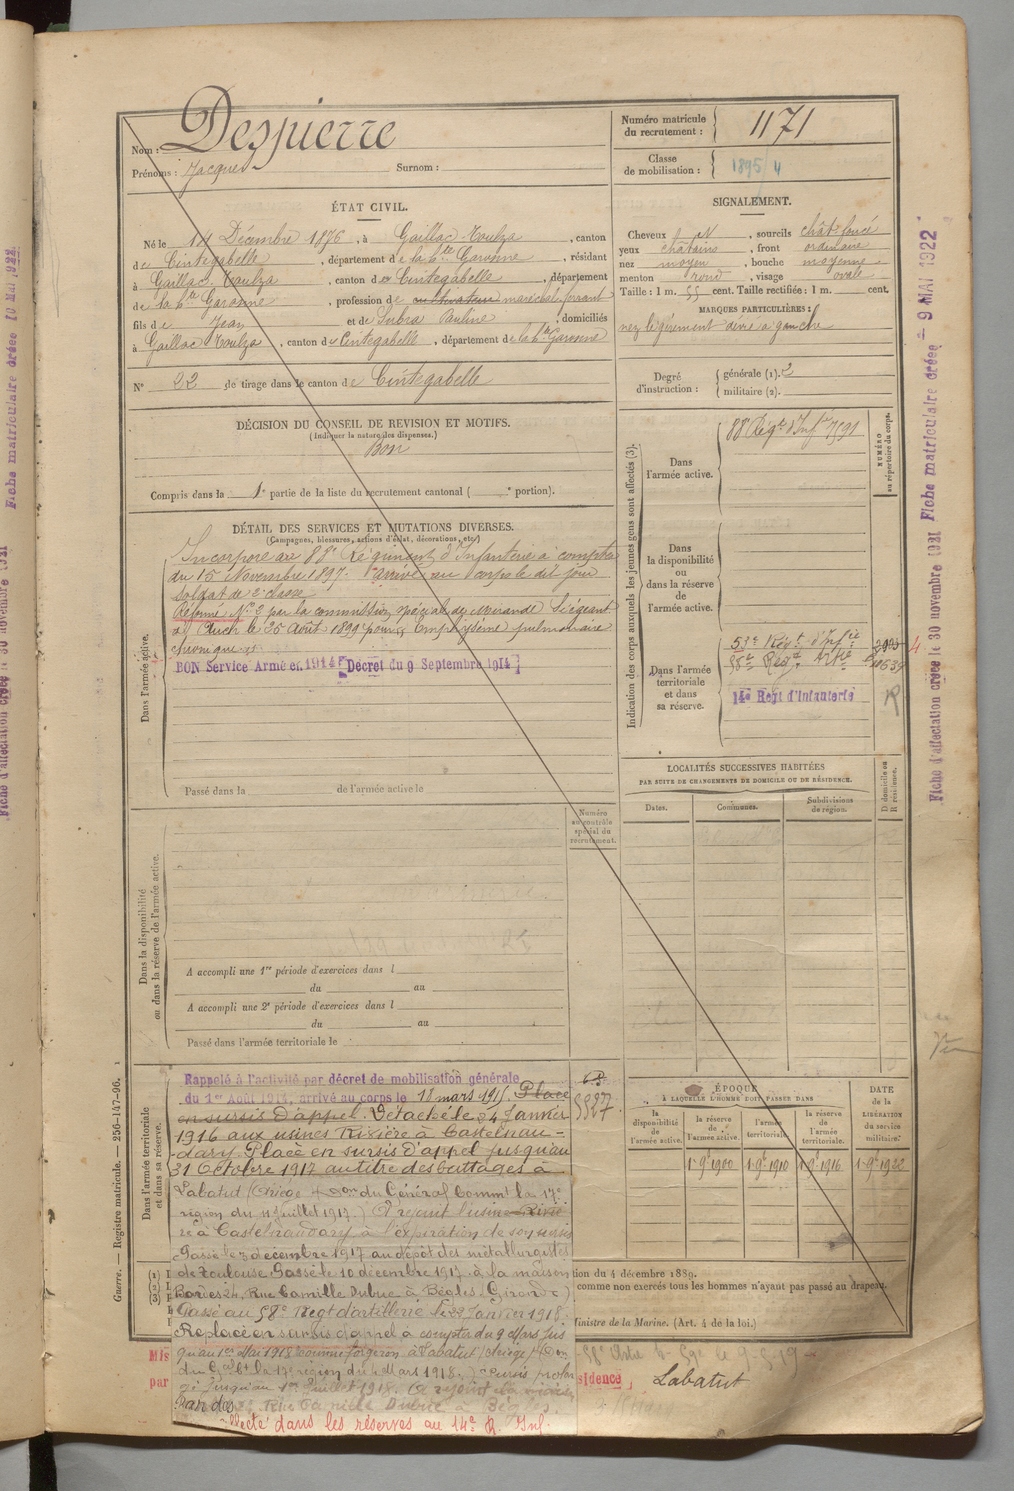 Nom : Despierre
Prénoms : Jacques Surnom :
Numéro matricule du recrutement : 1171
Classe de mobilisation : 1895/4
ÉTAT CIVIL.
Né le 14 Décembre 1876, à Gaillac-Toulza, canton
de Cintegabelle, département de la Hte Garonne, résidant
à Gaillac-Toulza, canton de Cintegabelle, département
de la Hte Garonne, profession de cultivateur maréchal ferrant
fils de Jean et de Subra Pauline, domiciliés
à Gaillac Toulza, canton de Cintegabelle, département de la Hte Garonne
N° 22 de tirage dans le canton de Cintegabelle
SIGNALEMENT.
Cheveux , sourcils chât. foncé
yeux châtains, front ordinaire
nez moyen, bouche moyenne
menton rond, visage ovale
Taille : 1 m. 55 cent. Taille rectifiée : 1 m. cent.
MARQUES PARTICULIÈRES :
nez légèrement dévié à gauche
Degré d'instruction : générale (1). 2
militaire (2).
DÉCISION DU CONSEIL DE REVISION ET MOTIFS.
(Indiquer la nature des dispenses.)
Bon
Compris dans la 1e partie de la liste du recrutement cantonal ( e portion).
DÉTAIL DES SERVICES ET MUTATIONS DIVERSES.
(Campagnes, blessures, actions d'éclat, décorations, etc.)
Dans l'armée active.
Incorporé au 88e Régiment d'Infanterie à compter
du 15 Novembre 1897. Arrivé au corps le dit jour
soldat de 2e classe
Réformé N° 2 par la commission spéciale de Mirande Siégeant
à Auch le 25 Août 1899 pour Emphysème pulmonaire
chronique
BON Service Armé en 1914 [Décret du 9 Septembre 1914]
Passé dans la de l'armée active le
Indication des corps auxquels les jeunes gens sont affectés (3).
NUMÉRO au répertoire du corps.
Dans l'armée active. 88e Régt d'Infie 7591
Dans la disponibilité ou dans la réserve de l'armée active.
Dans l'armée territoriale et dans sa réserve.
Régt d'Infie
58e Régt Artie
14e Regt d'Infanterie R
LOCALITÉS SUCCESSIVES HABITÉES
PAR SUITE DE CHANGEMENTS DE DOMICILE OU DE RÉSIDENCE.
Dates. Communes. Subdivisions de région. D domicile ou R résidence.
Numéro au contrôle spécial du recrutement.
Dans la disponibilité ou dans la réserve de l'armée active.
A accompli une 1re période d'exercices dans l
du au
A accompli une 2e période d'exercices dans l
du au
Passé dans l'armée territoriale le
Dans l'armée territoriale et dans sa réserve.
Rappelé à l'activité par décret de mobilisation générale
du 1er Août 1914, arrivé au corps le 18 mars 1915. Placé
en sursis d'appel. Détaché le 24 Janvier
1916 aux usines Rivière à Castelnau-
dary Placé en sursis d'appel jusqu'au
31 Octobre 1917 au titre des battages à
Labatut (Ariège) Don du Général Commt la 17e
région du 11 Juillet 1917.) A rejoint l'usine Riviè
re à Castelnaudary à l'expiration de son sursis
Passé le 3 décembre 1917 au dépôt des métallurgistes
de Toulouse Passé le 10 décembre 1917 à la maison
Rue Camille Dubuc à Bègles, Gironde)
Passé au 58e Regt d'artillerie le 22 Janvier 1918.
Replacé en sursis d'appel à compter du 9 Mars jus
qu'au 1er Mai 1918 comme forgeron à Labatut (Ariège) Don
du Gal Ct la 17e région du Mars 1918. Sursis prolon
gé jusqu'au 1er Juillet 1918. A rejoint la maison
Rue Camille Dubuc à Bègles.
dans les réserves au 14e R. Inf.
5827
ÉPOQUE
À LAQUELLE L'HOMME DOIT PASSER DANS
la disponibilité de l'armée active. la réserve de l'armée active. l'armée territoriale. la réserve de l'armée territoriale.
DATE de la LIBÉRATION du service militaire.
1-9e 1900 1-9e 1910 1-9e 1916 1-9e 1922
tion du 4 décembre 1889.
comme non exercés tous les hommes n'ayant pas passé au drapeau.
Ministre de la Marine. (Art. 4 de la loi.)
Mis
par
sidence
Labatut
Guerre. — Registre matricule. — 256-147-96.
Fiche d'affectation créée le 30 novembre 1921 Fiche matriculaire créée 9 MAI 1922
Fiche d'affectation créée le 30 novembre 1921
Fiche matriculaire créée 10 MAI 1922